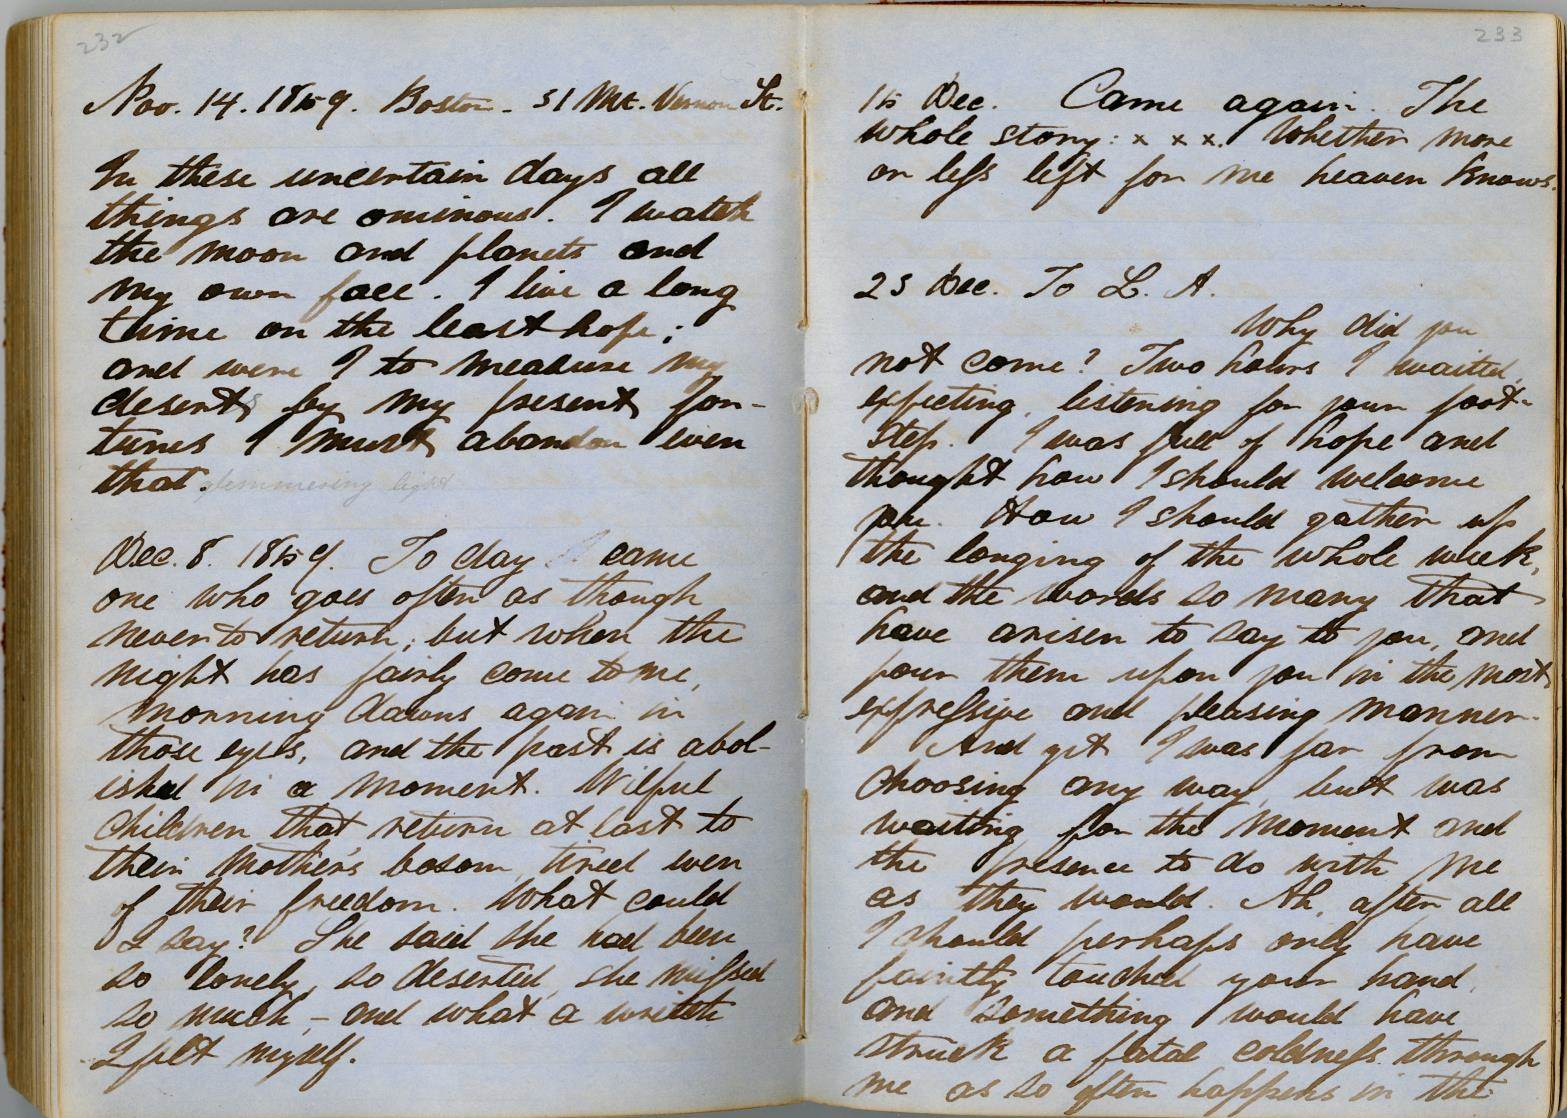 232
Nov. 14. 1859. Boston - 31 Mt. Vernon St.
In these uncertain days all
things are ominous. I watch
the moon and planets and
my own face. I live a long
time on the least hope;
and were I to measure my
deserts by my present for-
tunes I must abandon even
that. glimmering light
Dec. 8. 1859. To day came
one who goes often as though
never to return; but when the
night has fairly come to me,
morning dawns again in
those eyes, and the past is abol-
ished in a moment. Wilful
children that return at last to
their mother's bosom, tired even
of their freedom. What could
I say? She said she had been
so lonely, so deserted, she missed
so much, - and what a wretch
I felt myself.
233
15 Dec. Came again. The
whole story: x x x. Whether more
or less left for me heaven knows.
23 Dec. To L. A.
Why did you
not come? Two hours I waited,
expecting, listening for your foot-
step. I was full of hope and
thought how I should welcome
you. How I should gather up
the longing of the whole week,
and the words so many that
have arisen to say to you, and
pour them upon you in the most
expressive and pleasing manner.
And yet I was far from
choosing any way, but was
waiting for the moment and
the presence to do with me
as they would. Ah, after all
I should perhaps only have
faintly touched your hand,
and something would have
struck a fatal coldness through
me as so often happens in the